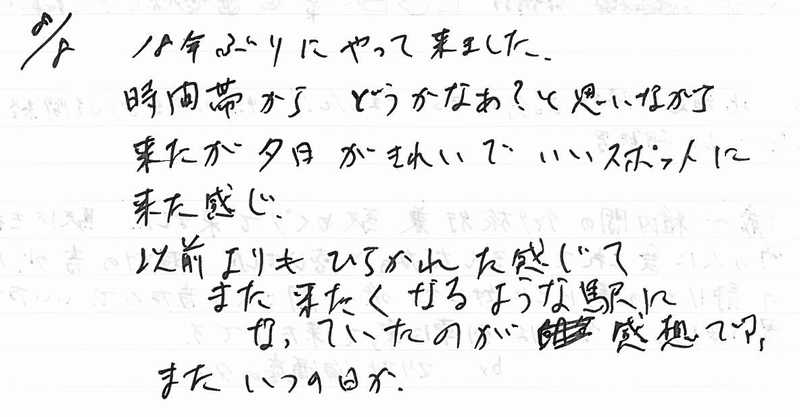 8/8 18年ぶりにやって来ました.
時間帯から どうかなあ?と思いながら
来たが夕日がきれいで いいスポットに
来た感じ.
以前よりも ひらかれた感じで
また来たくなるような駅に
なっていたのが 感想です.
また いつの日か.